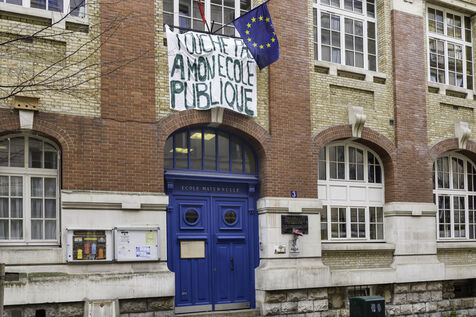 TOUCHE PAS
A MON ECOLE
PUBLIQUE
ECOLE MATERNELLE
3